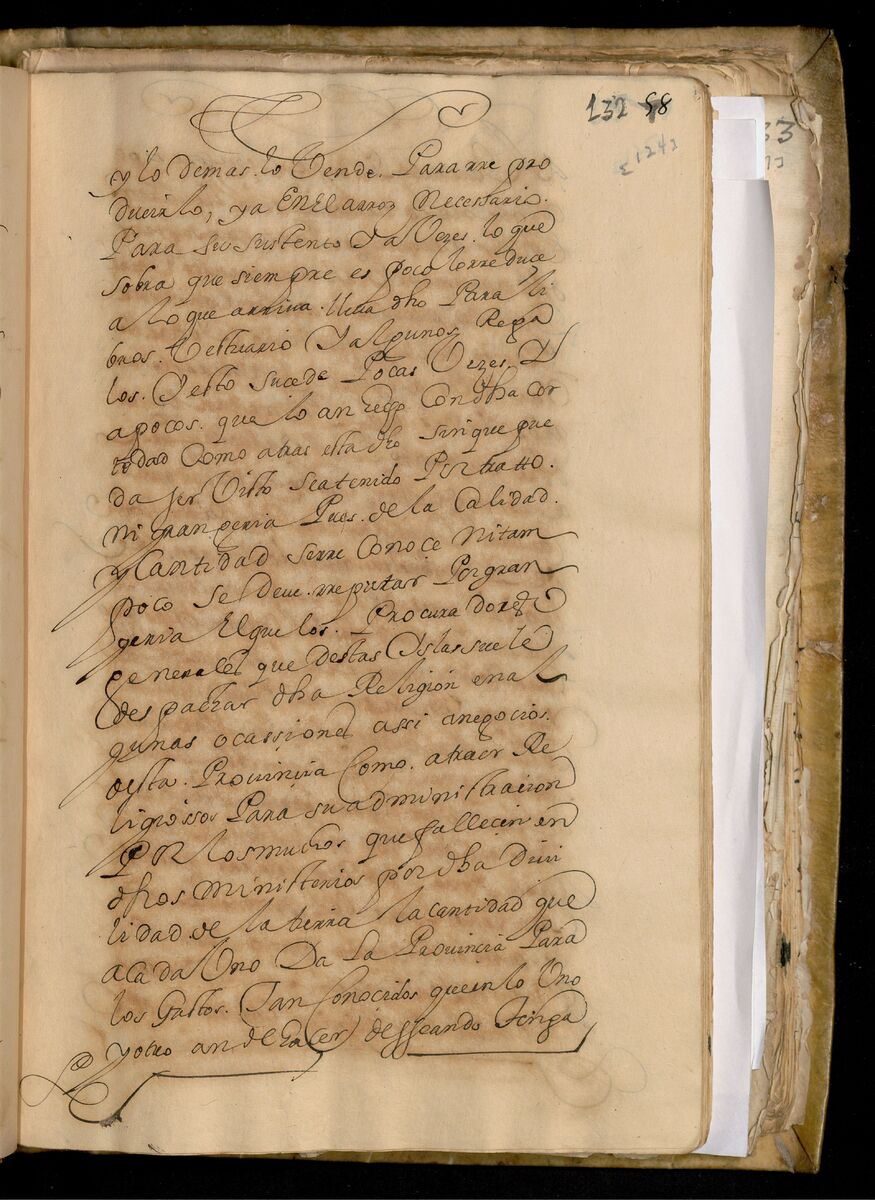 132 58
1242
33
y lo demas. lo Vende. Para rre pro
ducirlo, ya En El arroz Necessario.
Para su sustento Ya Vezes. lo que
sobra que siempre es poco lo rre duce
a lo que arriva. lleva dho Para li
bros. Vestuario Y algunos Rega
los. Y esto sucede Pocas Vezes. Y
apocos. que lo an Con dha cor
tedad Como atras esta dho sin que pue
da ser Visto se a tenido Por tratto.
ni grangeria Pues. de la Calidad.
y Cantidad serre Conoce Ni tam
poco se deve rreputar Por gran
geria El que los. Procuradores
generales que destas Yslas suele
despachar dha Religion en al
gunas ocassiones assi anegocios.
desta. Provincia Como. atraer Re
ligiossos Para su administracion
Por los muchos que fallecen en
dhos ministerios por dha
lidad de la tierra la cantidad que
a Cada Uno Da La Provincia Para
los Gastos. Tan Conocidos que en lo Uno
y otro an de hacer desseando Tenga